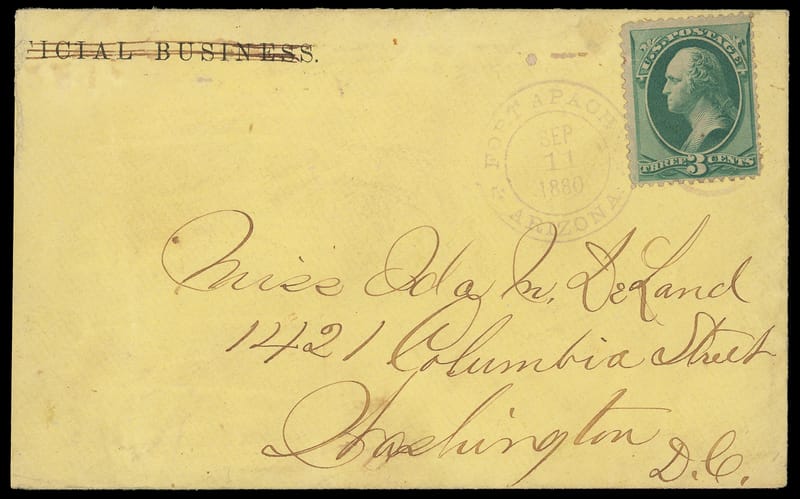 FICIAL BUSINESS.
U.S. POSTAGE
THREE 3 CENTS
FORT APACHE
SEP
11
1880
ARIZONA.
Miss Ida M. DeLand
1421 Columbia Street
Washington
D.C.